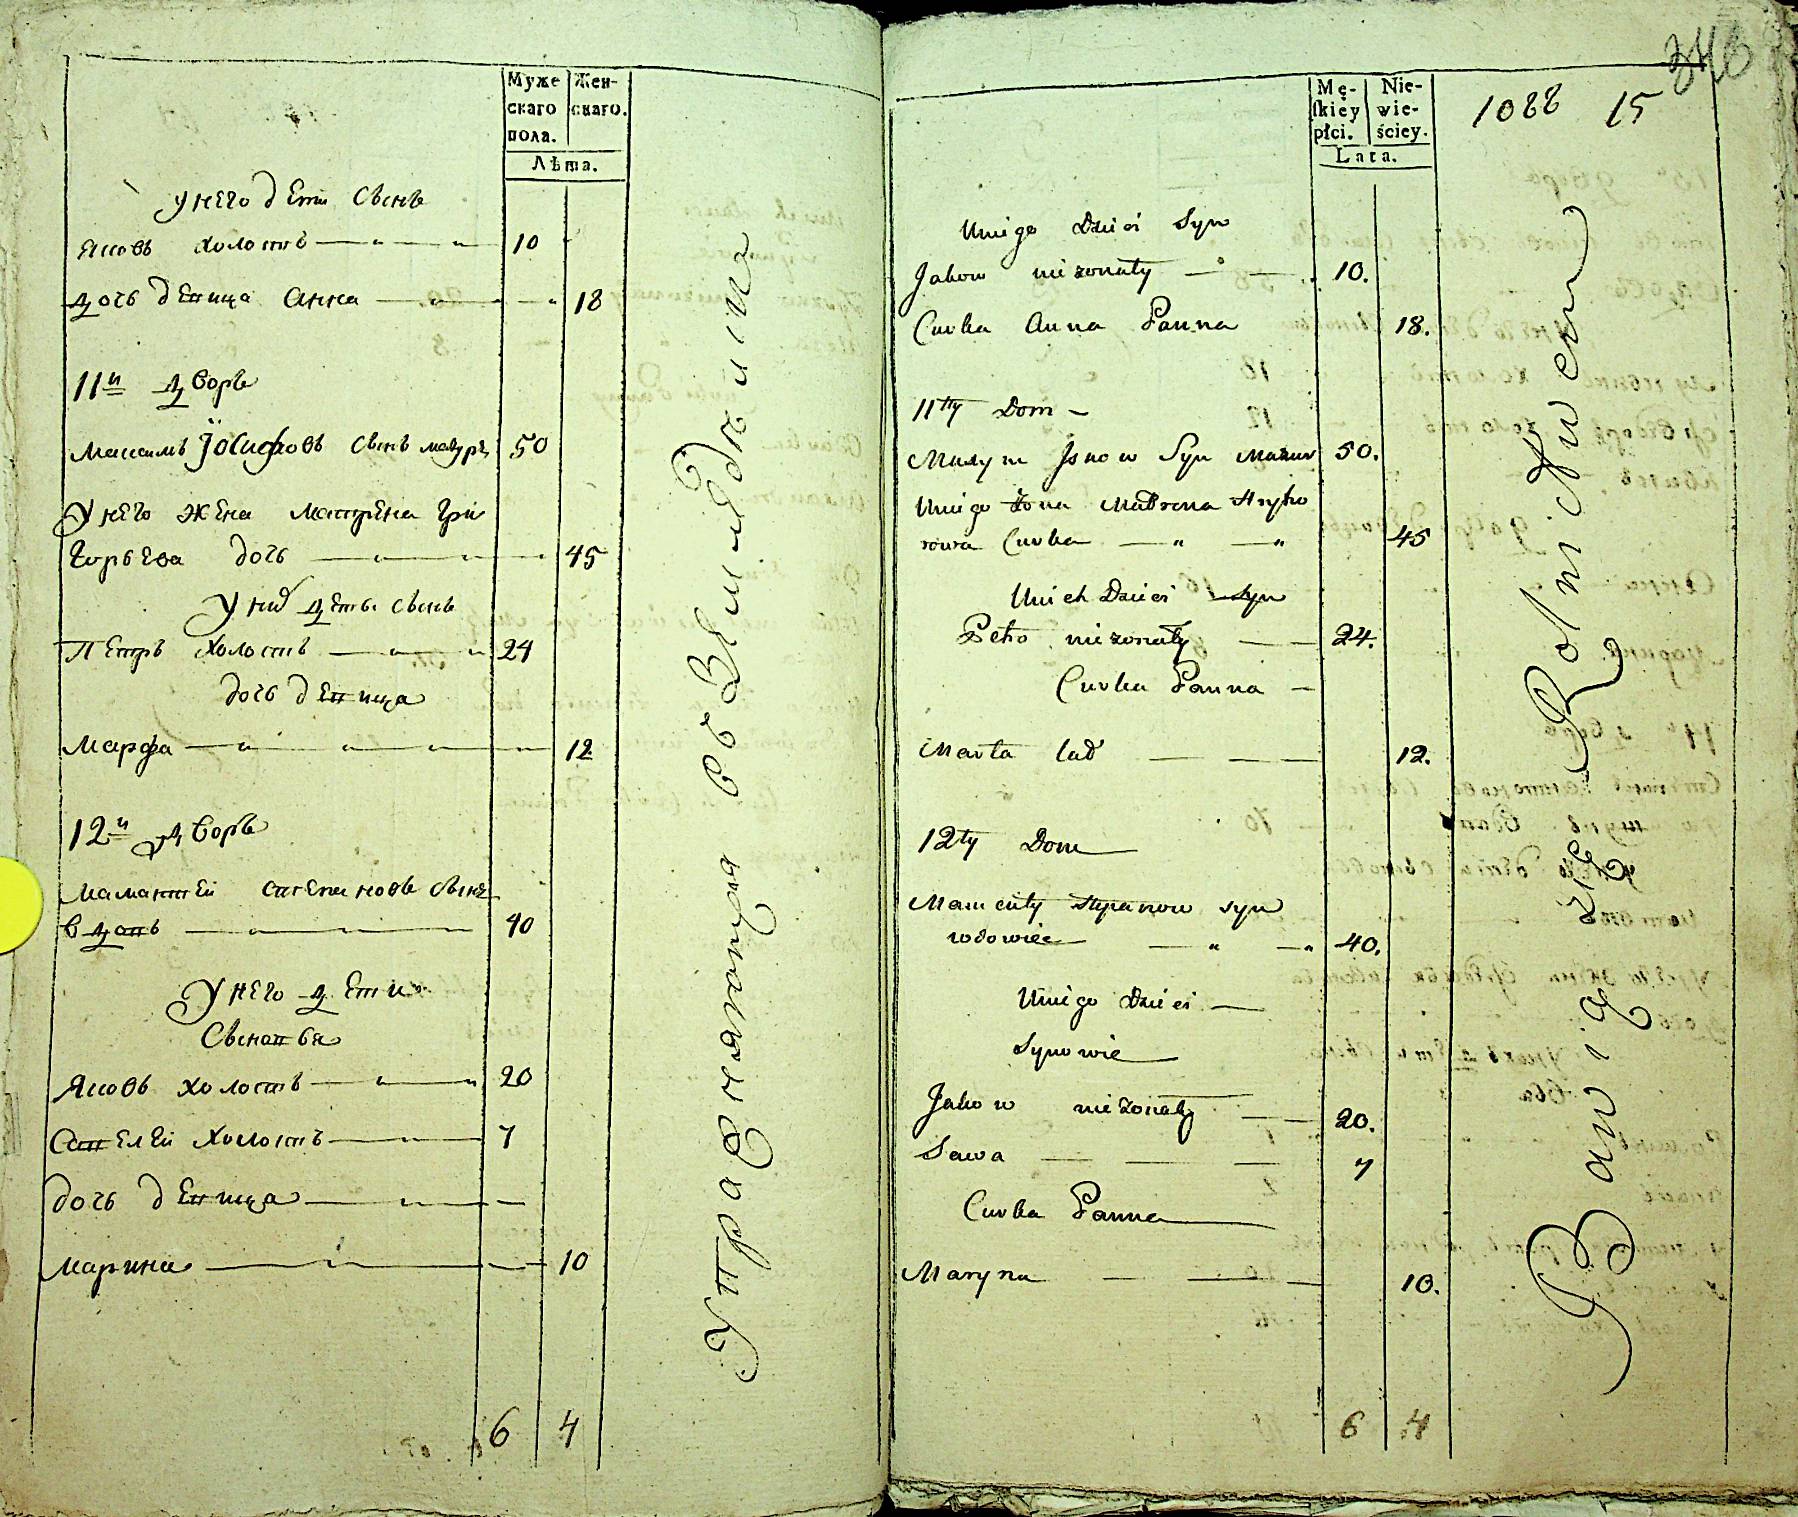 Муже
скаго
пола.
Жен-
скаго.
Лѣта.
У него дети сынъ
Яковъ холостъ 10
дочь девица Анна 18
11й дворъ
Максимъ Іосифовъ сынъ мазуръ 50
У него жена Матрена Гри
горьева дочь 45
У них дети сынъ
Петръ холостъ 24
дочь девица
Марфа 12
12й дворъ
Мамантей Степановъ сынъ
вдовъ 40
У него дети
Сыновья
Яковъ холостъ 20
Савелей холостъ 7
дочь девица
Марина 10
6 4
Упражняюца въ Земледѣлии
346
1088 15
Mę-
skiey
płci.
Nie-
wie-
ściey.
Lata.
U niego Dzieci Syn
Jakow nie zonaty 10.
Curka Anna Panna 18.
11ty Dom
Syn Mazur 50.
U niego Żona Matrona Hryho
rowa Curka 45
U nich Dzieci syn
Petro nie zonaty 24.
Curka Panna
Marta lad 12.
12ty Dom
Mamenty Stepanow syn
wdowiec 40.
U niego Dzieci
Synowie
Jakow nie zonaty 20.
Sawa 7
Curka Panna
Maryna 10.
6 4
Bawią się Rolnictwem